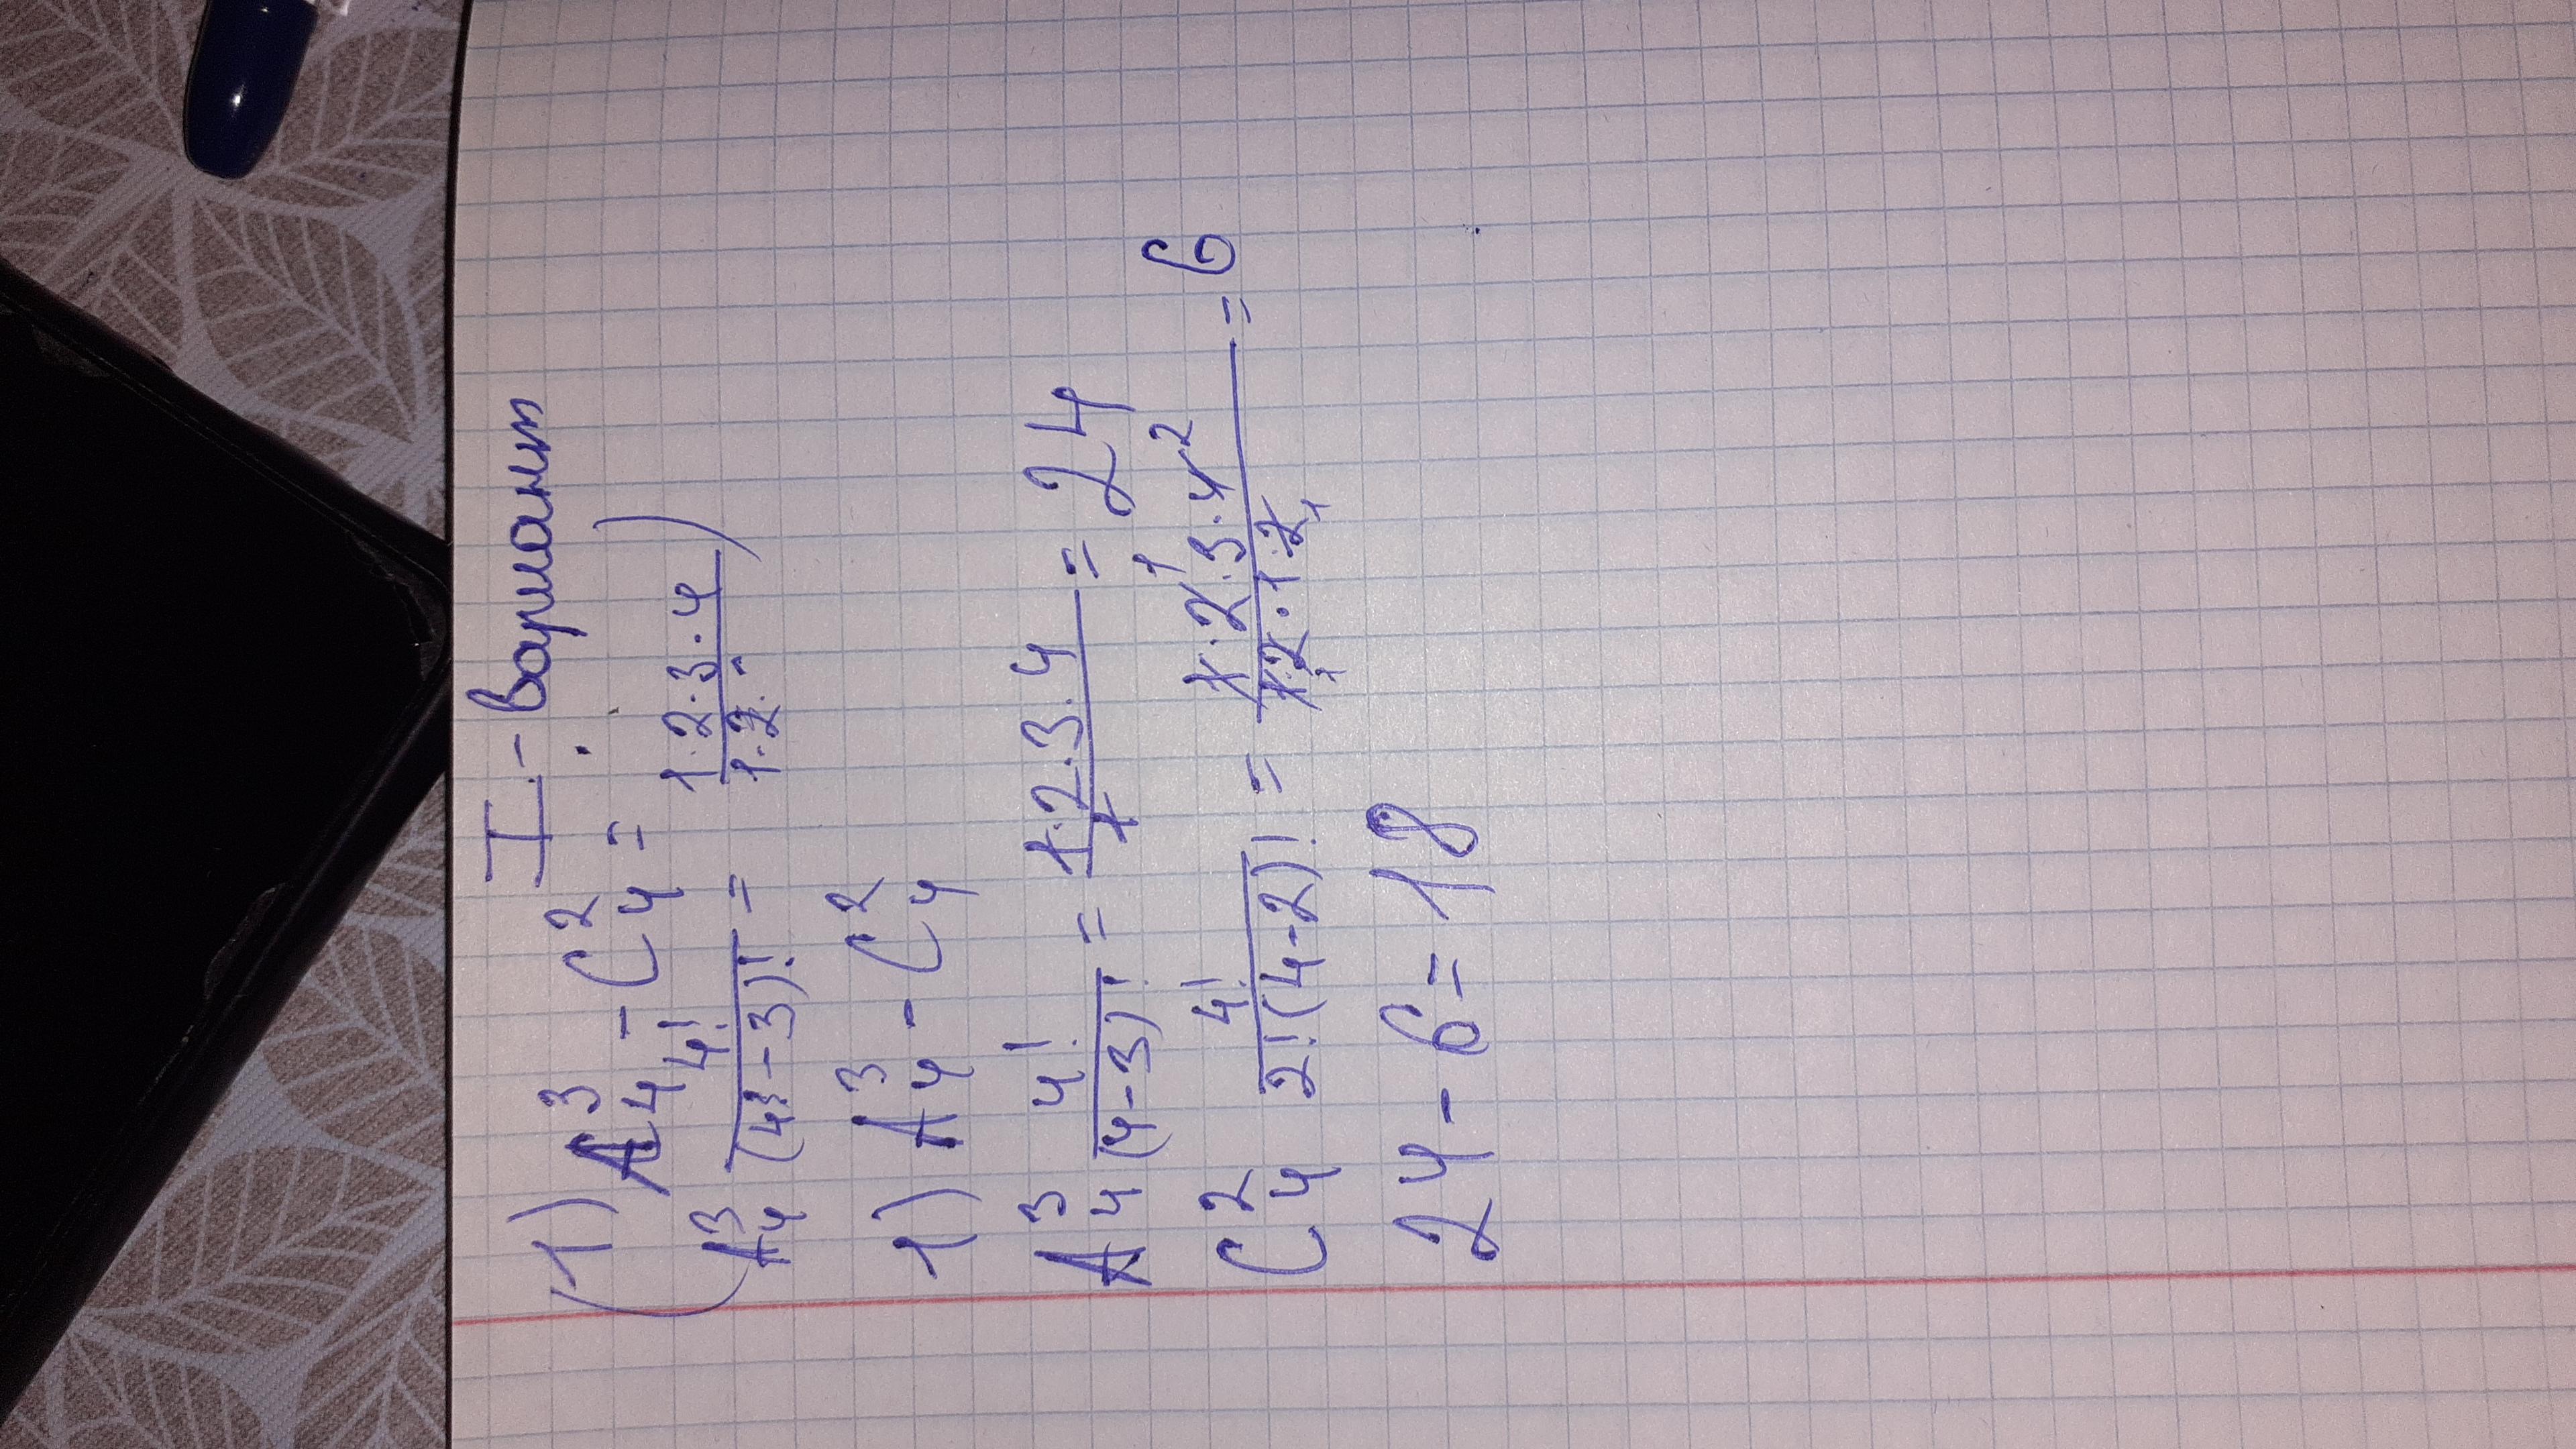 I - вариант
(1) A₄³ - C₄² = 1·2·3·4 / 1·2· )
A₄³ 4! / (4-3)! =
1) A₄³ - C₄²
A₄³ 4! / (4-3)! = 1·2·3·4 / 1 = 24
C₄² 4! / 2!(4-2)! = 1·2¹·3·4² / 1·2₁·1·2₁ = 6
24 - 6 = 18